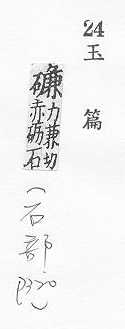 24
玉篇
磏力兼切
赤砺石
(石部
P320)